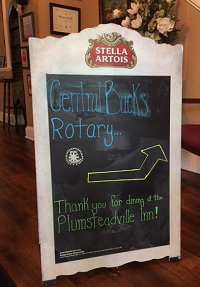 STELLA
ARTOIS
Central Bucks
Rotary...
Thank you for dining at the
Plumsteadville Inn!